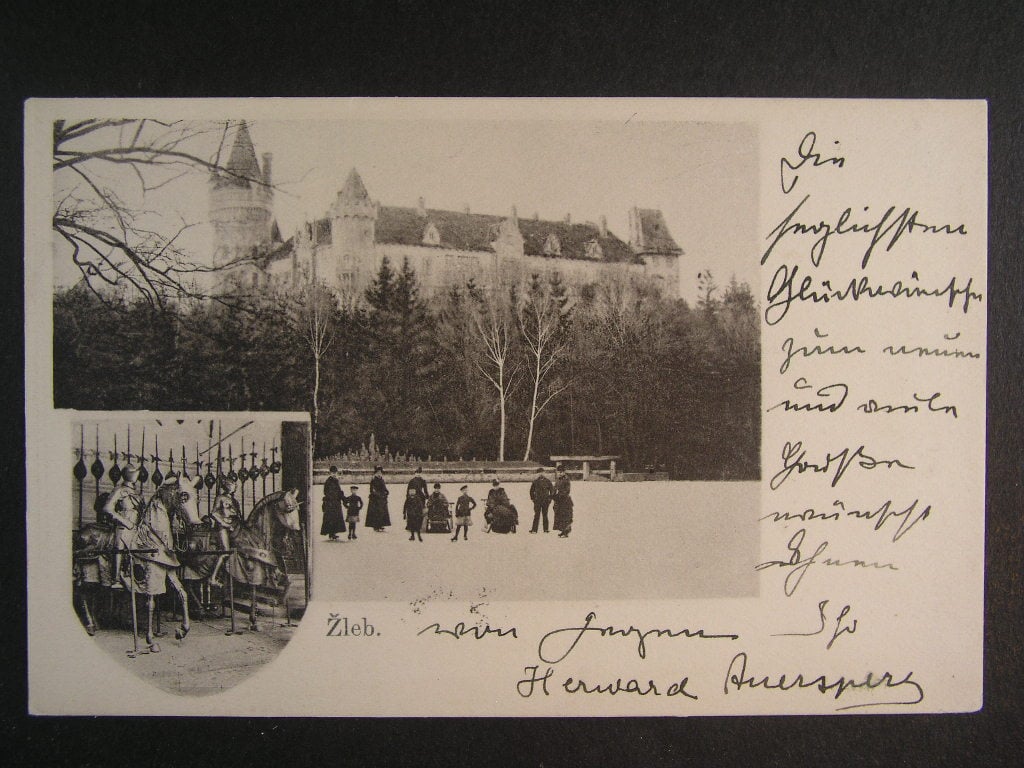 Die
herzlichsten
Glückwünsche
zum neuen
und viele
Grüße
wünscht
Ihnen
Ihr
Žleb.
von Herzen
Herward Auersperg